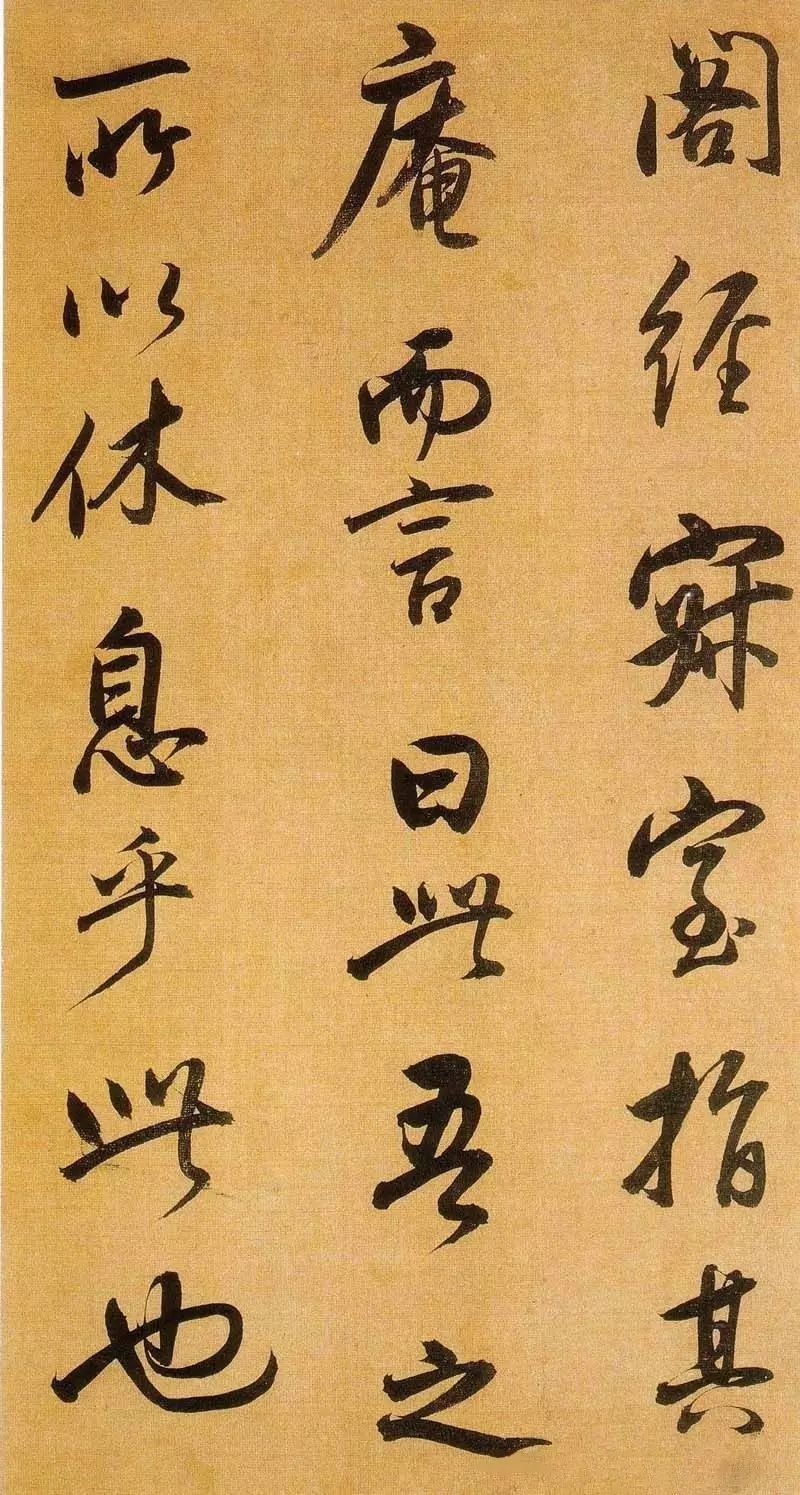 閣經室指其
庵而言曰此吾之
所以休息乎此也